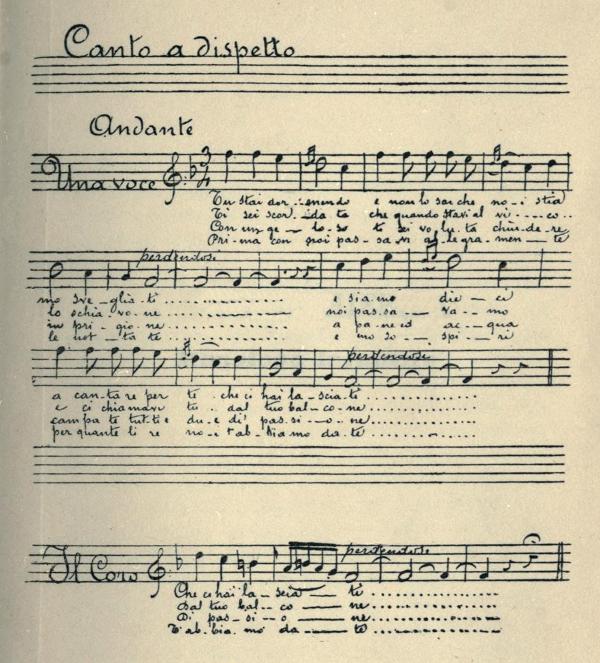 Canto a dispetto
Andante
Una voce
Tu stai dor..mendo e non lo sai che no-i stia
Ti sei scor..da ta che quando stavi al vi....co..
Con un ge-lo-so te sei vo-lu-ta chiu-de-re
Pri-ma con noi pas-sa vi al-le gra-men-te
perdendosi
mo sve-glia-ti.............. e sia-mo die-ci
lo schia-vo-ne noi pas.sa-va-mo
in pri-gio-ne.............. a pa-ne ed ac-qua
le not-ta te.............. e mo so-spi-ri
perdendosi
a can-ta re per te che ci hai la-scia-ti..............
e ci chiamavi tu.. dal tuo bal-co-ne..............
campa te tut-ti e du-e di' pas-si-o-ne..............
per quante li re no-i t'ab-bia mo da-te..............
Il Coro
perdendosi
Che ci hai la-scia ti..............
Dal tuo bal-co ne..............
Di pas-si-o ne..............
T'ab-bia-mo da te..............